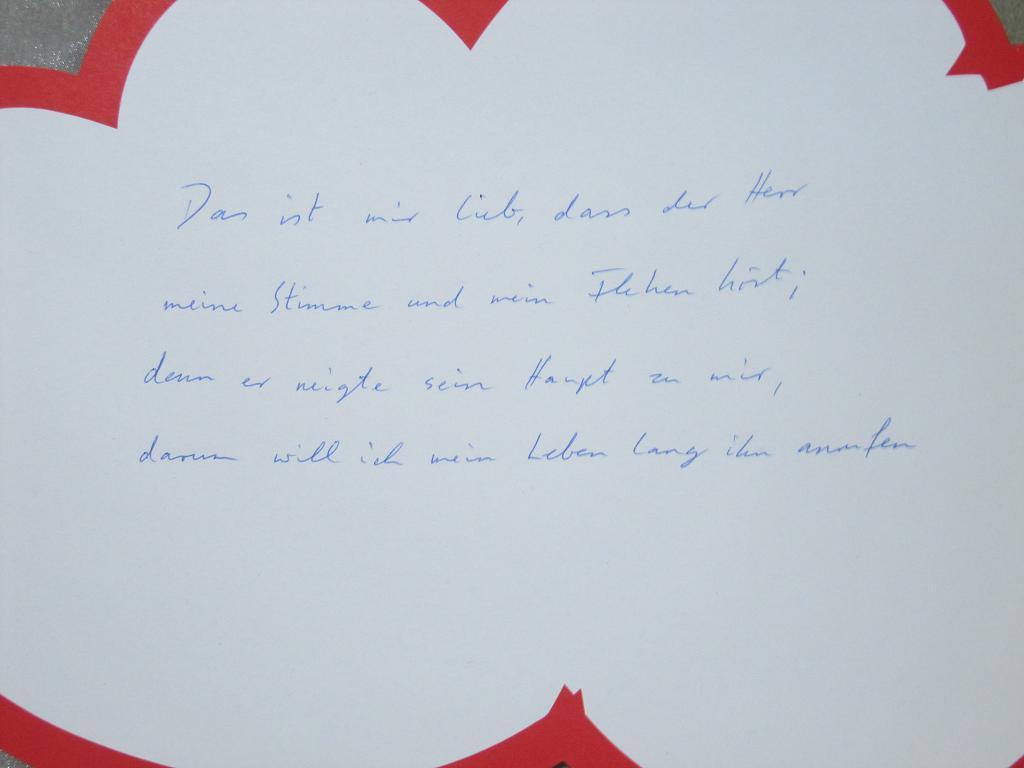 Das ist mir lieb, dass der Herr
meine Stimme und mein Flehen hört;
denn er neigte sein Haupt zu mir,
darum will ich mein Leben lang ihn anrufen